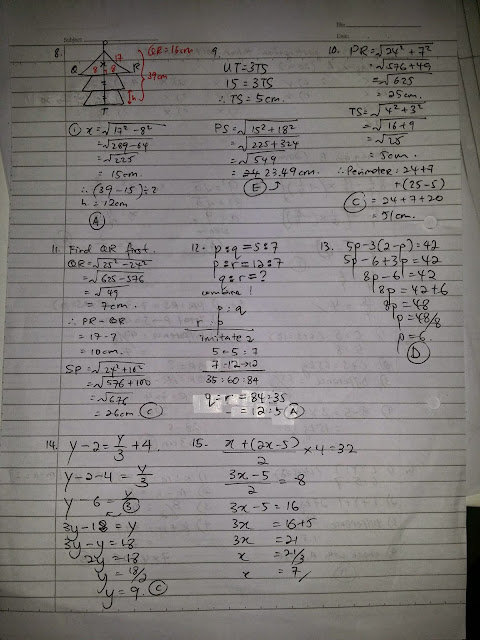 No:
Subject:
Date:
8.
P
17
QR = 16cm
Q
8
x
8
R
39cm
h
T
① x = √17² - 8²
= √289 - 64
= √225
= 15cm
∴ (39 - 15) ÷ 2
h = 12cm
Ⓐ
9.
UT = 3TS
15 = 3TS
∴ TS = 5cm.
PS = √15² + 18²
= √225 + 324
= √549
= 23.43cm.
Ⓔ
10. PR = √24² + 7²
= √576 + 49
= √625
= 25cm.
TS = √4² + 3²
= √16 + 9
= √25
= 5cm.
∴ Perimeter: 24 + 7
+ (25 - 5)
Ⓒ = 24 + 7 + 20
= 51cm.
11. Find QR first.
QR = √25² - 24²
= √625 - 576
= √49
= 7cm.
∴ PR - QR
= 17 - 7
= 10cm.
SP = √24² + 10²
= √576 + 100
= √676
= 26cm Ⓒ
12. p : q = 5 : 7
p : r = 12 : 7
q : r = ?
combine 1
p : q
r : p
imitate 2
5 = 5 : 7
7 : 12 → 12
35 : 60 : 84
q = r = 84 : 35
= 12 : 5 Ⓐ
13. 5p - 3(2 - p) = 42
5p - 6 + 3p = 42
8p - 6 = 42
8p = 42 + 6
8p = 48
p = 48/8
p = 6.
Ⓓ
14. y - 2 = y/3 + 4.
y - 2 - 4 = y/3
y - 6 = y/3
3y - 18 = y
3y - y = 18
2y = 18
y = 18/2
y = 9. Ⓒ
15. x + (2x - 5)/2 × 4 = 32
3x - 5/2 = 8
3x - 5 = 16
3x = 16 + 5
3x = 21
x = 21/3
x = 7/